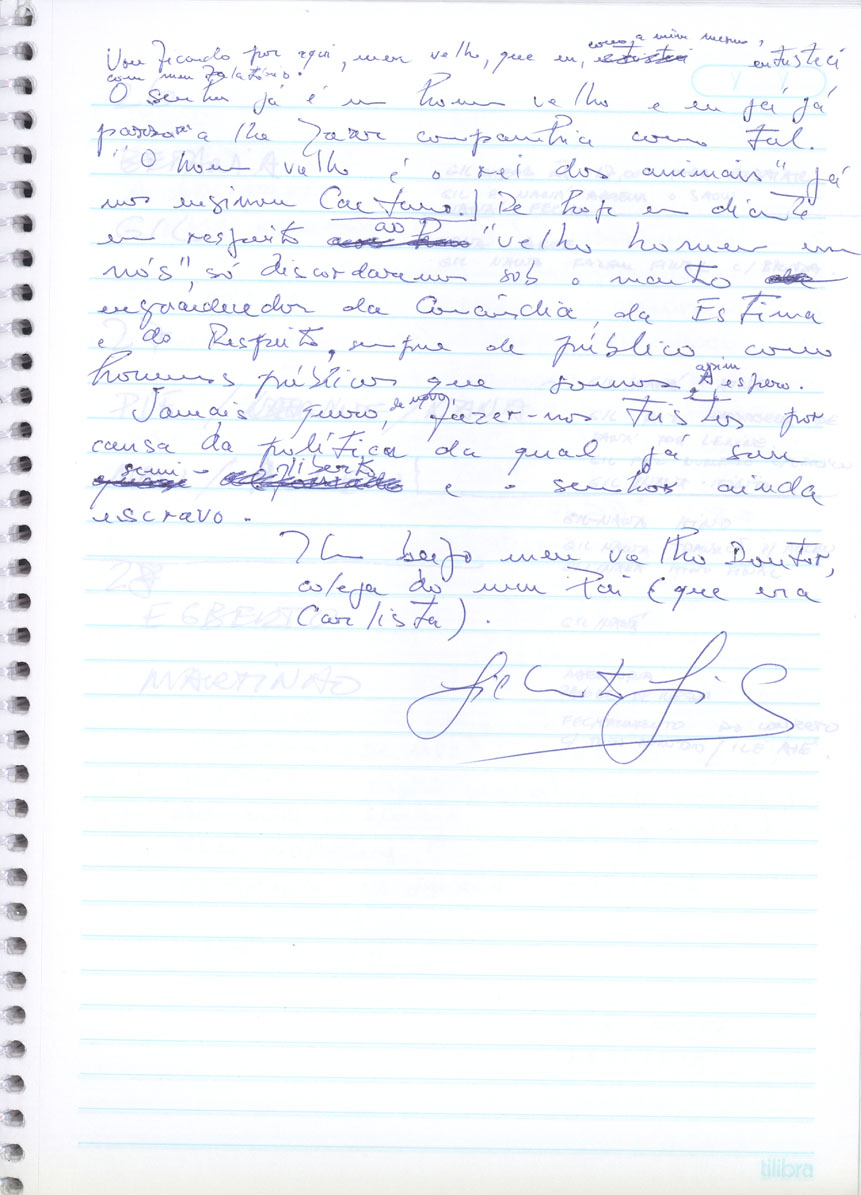 Vou ficando por aqui, meu velho, que eu, como a mim mesmo, entristeci
com meu palatório.
O senhor já é um homem velho e eu já já
passarei a lhe fazer companhia como tal.
"O homem velho é o rei dos animais" já
nos ensinou Caetano.] De hoje em diante
em respeito ao "velho homem em
nós", só discordaremos sob o manto
engrandecedor da Concórdia, da Estima
e do Respeito, sempre de público, como
homens públicos que somos, assim espero.
Jamais quero, de novo, fazer-nos tristes por
causa da política da qual já sou
semi-liberto e o senhor ainda
escravo.
Um beijo meu velho Doutor,
colega do meu Pai (que era
Carlista).
Gilberto Gil
BERNA
GIL
28
EGBERTO
MARTINHO
GIL-NANA
FECHAMENTO DO CONCERTO
/ ILE AIÊ
tilibra